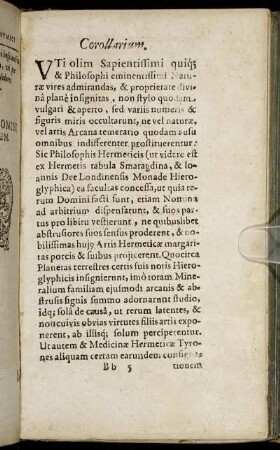 Corollarium.
VTi olim Sapientissimi quiq;
& Philosophi eminentissimi Natu-
ræ vires admirandas, & proprietate divi-
nâ planè insignitas, non stylo quodam
vulgari & aperto, sed variis numeris &
figuris miris occultarunt, ne vel naturæ,
vel artis Arcana temeratio quodam ausu
omnibus indifferenter prostituerentur:
Sic Philosophis Hermeticis (ut videre est
ex Hermetis tabula Smaragdina, & Io-
annis Dee Londinensis Monade Hiero-
glyphica) ea facultas concessa, ut quia re-
rum Domini facti sunt, etiam Nomina
ad arbitrium dispensarunt, & suos par-
tus pro libitu vestierunt, ne quibuslibet
abstrusiores suos sensus proderent, & no-
bilissimas hujꝰ Artis Hermeticæ margari-
tas porcis & suibus projicerent. Quocirca
Planetas terrestres certis suis notis Hiero-
glyphicis insignierunt, imò totam Mine-
ralium familiam ejusmodi arcanis & ab-
strusis signis summo adornarunt studio,
idq; solâ de causâ, ut rerum latentes, &
non cuivis obvias virtutes filiis artis expo-
nerent, ab illisq; solum perciperentur.
Ut autem & Medicinæ Hermeticæ Tyro-
nes aliquam certam earundem consigna-
Bb 5 tionem